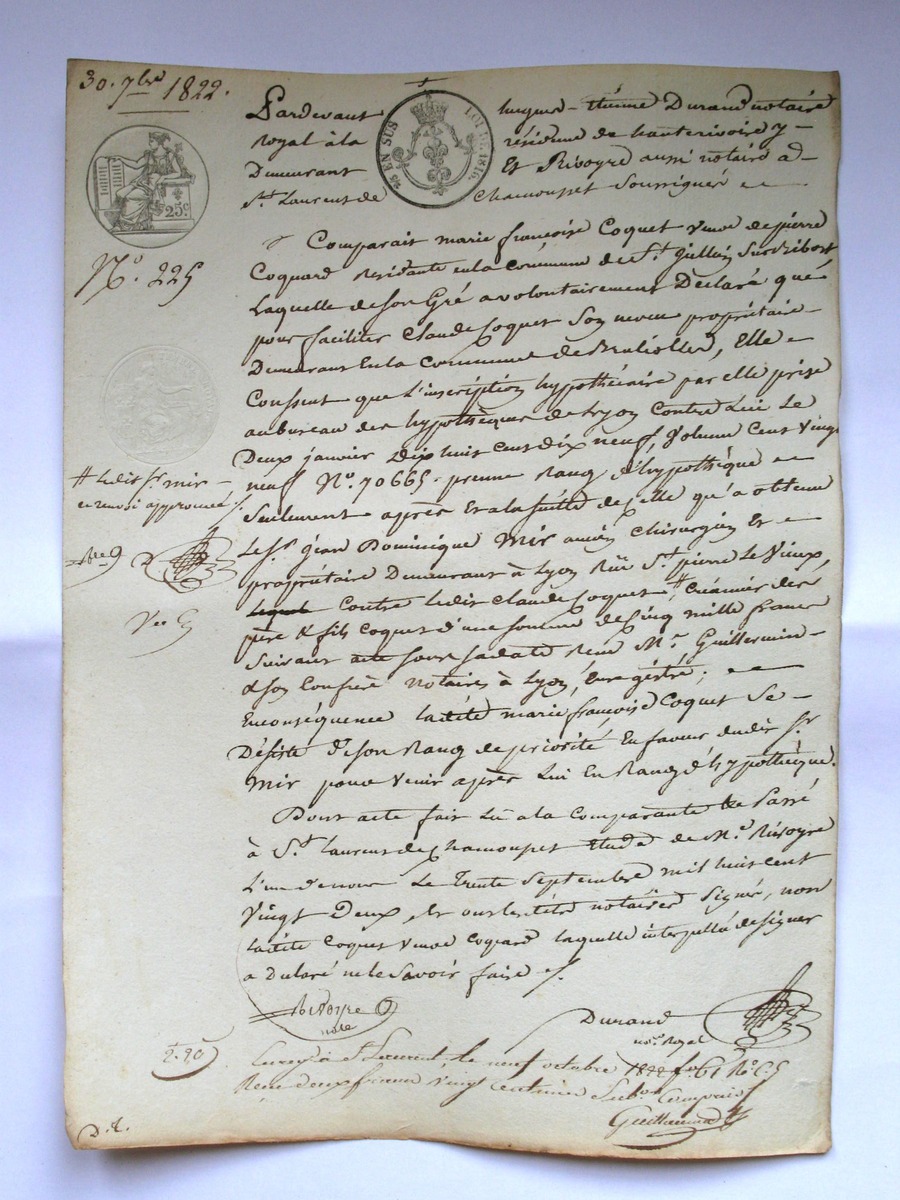 30. 7bre 1822.
Pardevant hugues-étiénne Durand notaire
royal à la résidence de hauterivoire y
Demeurant Et Rivoyre aussi notaire a
St. Laurent de Chamousset Soussignés
25 EN SUS
LOI DE 1816.
25c
No. 225
Comparait marie françoise Coquet veuve de pierre
Coquard Residante en la Commune de St. jullien Sur Bibost
Laquelle de son Gré a volontairement Declaré que
pour faciliter Claude Coquet Son neveu propriétaire
Demeurant En la Commune de Brullolles, Elle
Consent que L'inscription hypothécaire par elle prise
au bureau des hypothèques de Lyon Contre Lui Le
Deux janvier Dix huit cent dix neuf, Volume Cent Vingt
neuf No. 70665. prenne Rang D'hypothèque
Seulement après Et a la suitte de Celle qu'a obtenu
Le Sr. jean Dominique Mir ancien Chirurgien Et
propriétaire Demeurant à Lyon Rüe St. pierre Le Vieux,
Contre Ledit Claude Coquet # Créancier des
père & fils Coquet d'une somme de Cinq mille francs
Suivant acte sous sa date Reçu Me. Guillermin
& son Confrère notaires à Lyon, Enregistré;
En conséquence ladite marie françoise Coquet Se
Désiste de son Rang de priorité En faveur dudit Sr.
Mir pour Venir après Lui En Rang d'hypothèque.
# Ledit Sr. mir
en renvoi approuvé
D
Pour acte fait Lu a la Comparante & passé
à St. Laurent de Chamousset Etude de Me. Rivoyre
L'un de nous Le Trente Septembre mil huit cent
Vingt Deux, Et ont Lesdits notaires Signé, non
ladite Coquet veuve Coquard laquelle interpellée de signer
a Declaré ne le Savoir faire
Rivoyre
note
Durand
nore. Royal
2.20
Enregé. à St. Laurent, le neuf octobre 1822 fo. 61 Ro. C5
Reçu deux francs vingt centimes Subon. Comprise
Guillaumod
D.C.